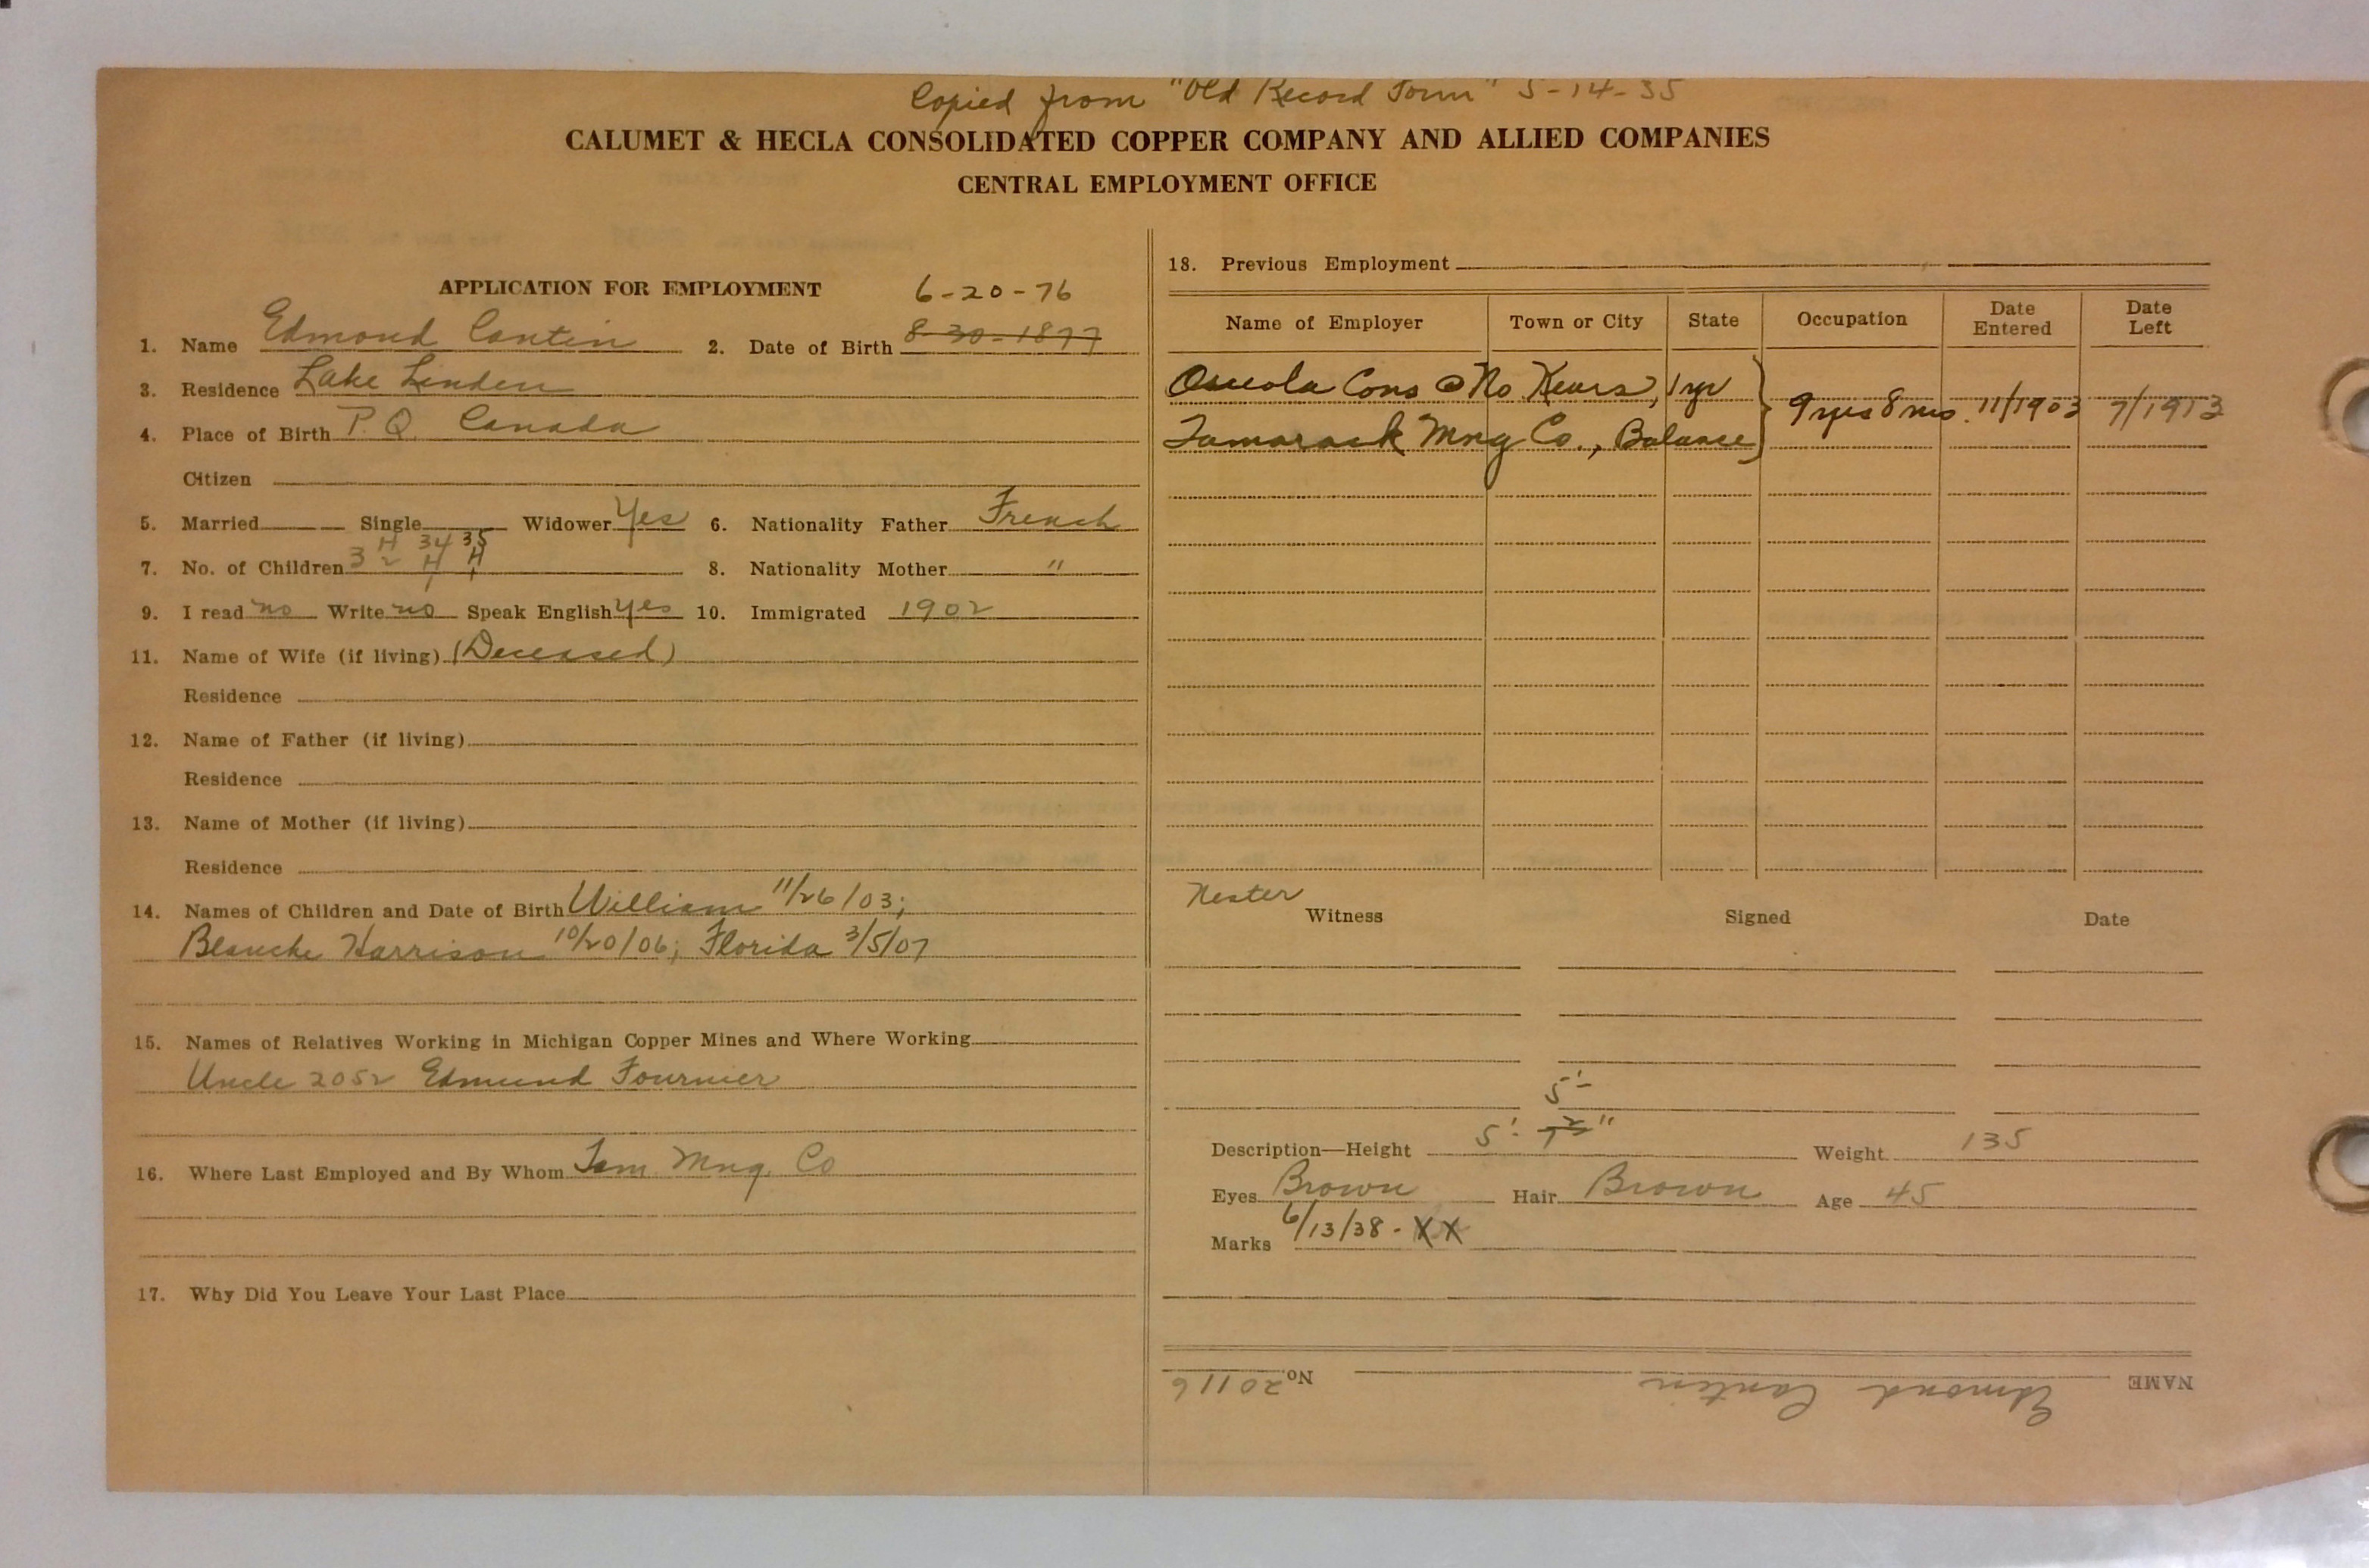 Copied from "Old Record Form" 5-14-35
CALUMET & HECLA CONSOLIDATED COPPER COMPANY AND ALLIED COMPANIES
CENTRAL EMPLOYMENT OFFICE
APPLICATION FOR EMPLOYMENT 6-20-76
1. Name Edmond Cantin 2. Date of Birth 8-30-1877
3. Residence Lake Linden
4. Place of Birth P.Q. Canada
Citizen
5. Married Single Widower Yes 6. Nationality Father French
H 34 35
7. No. of Children 3 2 H H 8. Nationality Mother "
9. I read no Write no Speak English yes 10. Immigrated 1902
11. Name of Wife (if living) (Deceased)
Residence
12. Name of Father (if living)
Residence
13. Name of Mother (if living)
Residence
14. Names of Children and Date of Birth William 11/26/03;
Blanche Harrison 10/20/06; Florida 3/5/07
15. Names of Relatives Working in Michigan Copper Mines and Where Working
Uncle 2052 Edmund Fournier
16. Where Last Employed and By Whom Tam. Mng. Co
17. Why Did You Leave Your Last Place
18. Previous Employment
Name of Employer Town or City State Occupation Date Entered Date Left
Osceola Cons @ No Kears, 1 yr
9 yrs 8 mo. 11/1903 7/1913
Tamarack Mng Co., Balance
Nester
Witness Signed Date
5'
Description—Height 5' Weight 135
Eyes Brown Hair Brown Age 45
Marks 6/13/38 - XX
NAME Edmond Cantin No. 20116